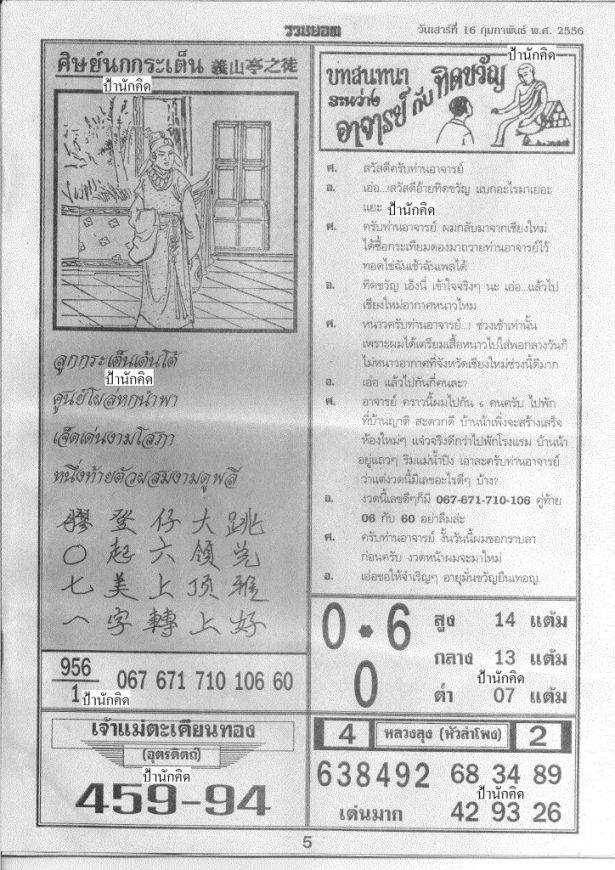 รวมยอด
วันเสาร์ที่ 16 กุมภาพันธ์ พ.ศ. 2556
ศิษย์นกกระเต็น 義山亭之徒
ป้านักคิด
ลูกกระเต็นเต้นโต้
ป้านักคิด
ศูนย์โผล่หกนำพา
เจ็ดเด่นงามโสภา
หนึ่งท้ายตัวผสมงามดูพลี
膠登仔大跳
〇起六領先
七美上頂雅
一字轉上好
956
1
ป้านักคิด
067 671 710 106 60
เจ้าแม่ตะเคียนทอง
(อุตรดิตถ์)
ป้านักคิด
459-94
ป้านักคิด
บทสนทนา
ระหว่าง
อาจารย์ กับ ทิดขวัญ
ศ. สวัสดีครับท่านอาจารย์
อ. เอ่อ...!สวัสดีอ้ายทิดขวัญ แบกอะไรมาเยอะ
แยะ ป้านักคิด
ศ. ครับท่านอาจารย์ ผมกลับมาจากเชียงใหม่
ได้ซื้อกระเทียมดองมาถวายท่านอาจารย์ไว้
ทอดไข่ฉันเช้าฉันเพลได้
อ. ทิดขวัญ เอ็งนี่ เข้าใจจริงๆ นะ เอ่อ...แล้วไป
เชียงใหม่อากาศหนาวไหม
ศ. หนาวครับท่านอาจารย์...! ช่วงเช้าเท่านั้น
เพราะผมได้เตรียมเสื้อหนาวไปใส่พอกลางวันก็
ไม่หนาวอากาศที่จังหวัดเชียงใหม่ช่วงนี้ดีมาก
อ. เอ่อ แล้วไปกันกี่คนละ?
ศ. อาจารย์ คราวนี้ผมไปกัน ๖ คนครับ ไปพัก
ที่บ้านญาติ สะดวกดี บ้านน้าเพิ่งจะสร้างเสร็จ
ห้องใหม่ๆ แจ๋วจริงดีกว่าไปพักโรงแรม บ้านน้า
อยู่แถวๆ ริมแม่น้ำปิง เอาละครับท่านอาจารย์
ว่าแต่งวดนี้มีเลขอะไรดีๆ บ้าง?
อ. งวดนี้เลขดีๆก็มี 067-671-710-106 คู่ท้าย
06 กับ 60 อย่าลืมล่ะ
ศ. ครับท่านอาจารย์ งั้นวันนี้ผมขอกราบลา
ก่อนครับ งวดหน้าผมจะมาใหม่
อ. เอ่อขอให้จำเริญๆ อายุมั่นขวัญยืนทอญ.
0-6
0
สูง 14 แต้ม
กลาง 13 แต้ม
ป้านักคิด
ต่ำ 07 แต้ม
4 หลวงลุง (หัวลำโพง) 2
638492 68 34 89
ป้านักคิด
เด่นมาก 42 93 26
5